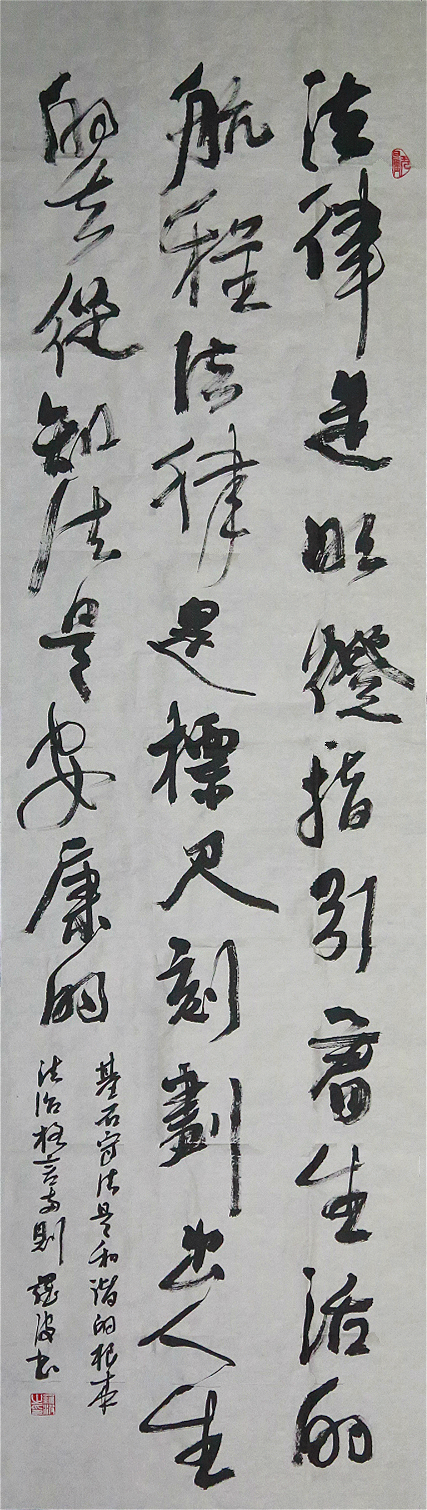 法律是明燈指引着生活的
航程法律是標尺刻劃出人生
的從知法是安康的
基石守法是和諧的根本
法治格言兩則 波书